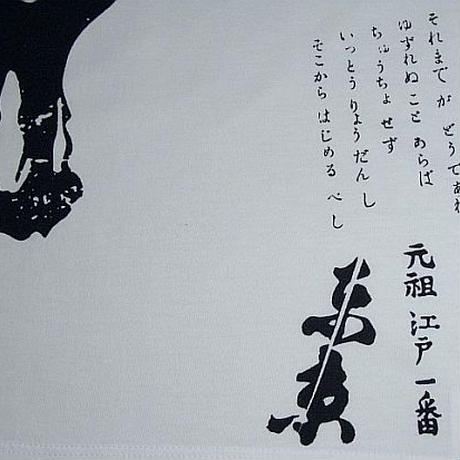 それまで が どうであれ
ゆずれぬ こと あらば
ちゅうちょ せず
いっとう りょうだん し
そこから はじめる べし
元祖 江戸 一番